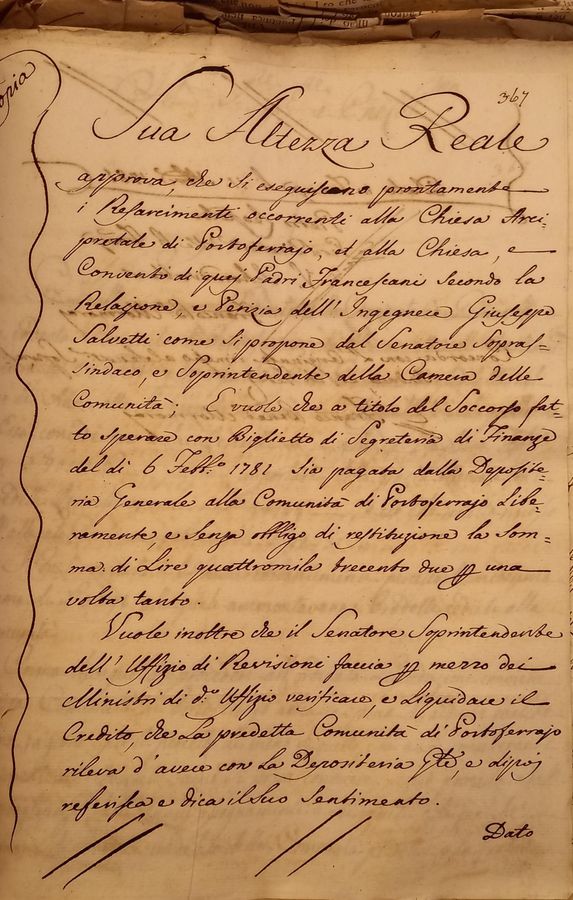 Copia
367
Sua Altezza Reale
approva, che si eseguiscano prontamente
i Resarcimenti occorrenti alla Chiesa Arci-
pretale di Portoferrajo, et alla Chiesa, e
Convento di quej Padri Francescani secondo la
Relazione, e Perizia dell' Ingegnere Giuseppe
Salvetti come si propone dal Senatore Sopras-
sindaco, e Soprintendente della Camera delle
Comunità; E vuole che a titolo del Soccorso fat-
to sperare con Biglietto di Segreteria di Finanze
del dì 6 Febb.º 1781 sia pagata dalla Deposite-
ria Generale alla Comunità di Portoferrajo Libe-
ramente, e senza obbligo di restituzione la Som-
ma di Lire quattromila trecento due p una
volta tanto.
Vuole inoltre che il Senatore Soprintendente
dell' Uffizio di Revisioni faccia p mezzo dei
Ministri di d.º Uffizio verificare, e Liquidare il
Credito, che La predetta Comunità di Portoferrajo
rileva d'avere con La Depositeria Gle, e dipoj
referisca e dica il suo sentimento.
Dato